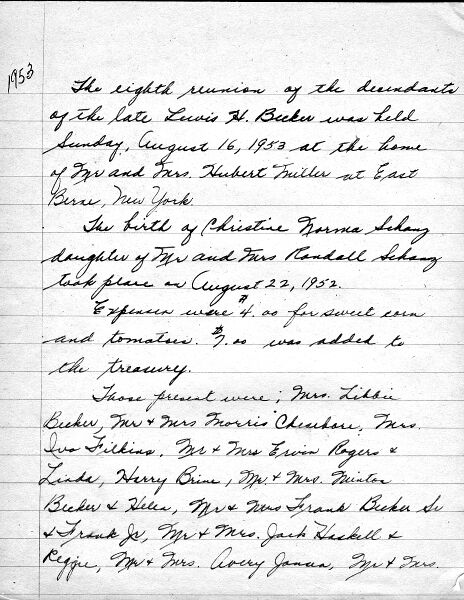 1953
The eighth reunion of the descendants
of the late Lewis H. Becker was held
Sunday, August 16, 1953 at the home
of Mr and Mrs. Hubert Miller at East
Berne, New York.
The birth of Christine Norma Schanz
daughter of Mr and Mrs Randall Schanz
took place on August 22, 1952.
Expenses were $4.00 for sweet corn
and tomatoes. $7.00 was added to
the treasury.
Those present were; Mrs. Libbie
Becker, Mr & Mrs Morris Chesebore, Mrs.
Iva Filkins, Mr & Mrs Ervin Rogers &
Linda, Harry Brine, Mr & Mrs. Minton
Becker & Helen, Mr & Mrs Frank Becker Sr
& Frank Jr, Mr & Mrs. Jack Haskell &
Reggie, Mr & Mrs. Avery , Mr & Mrs.